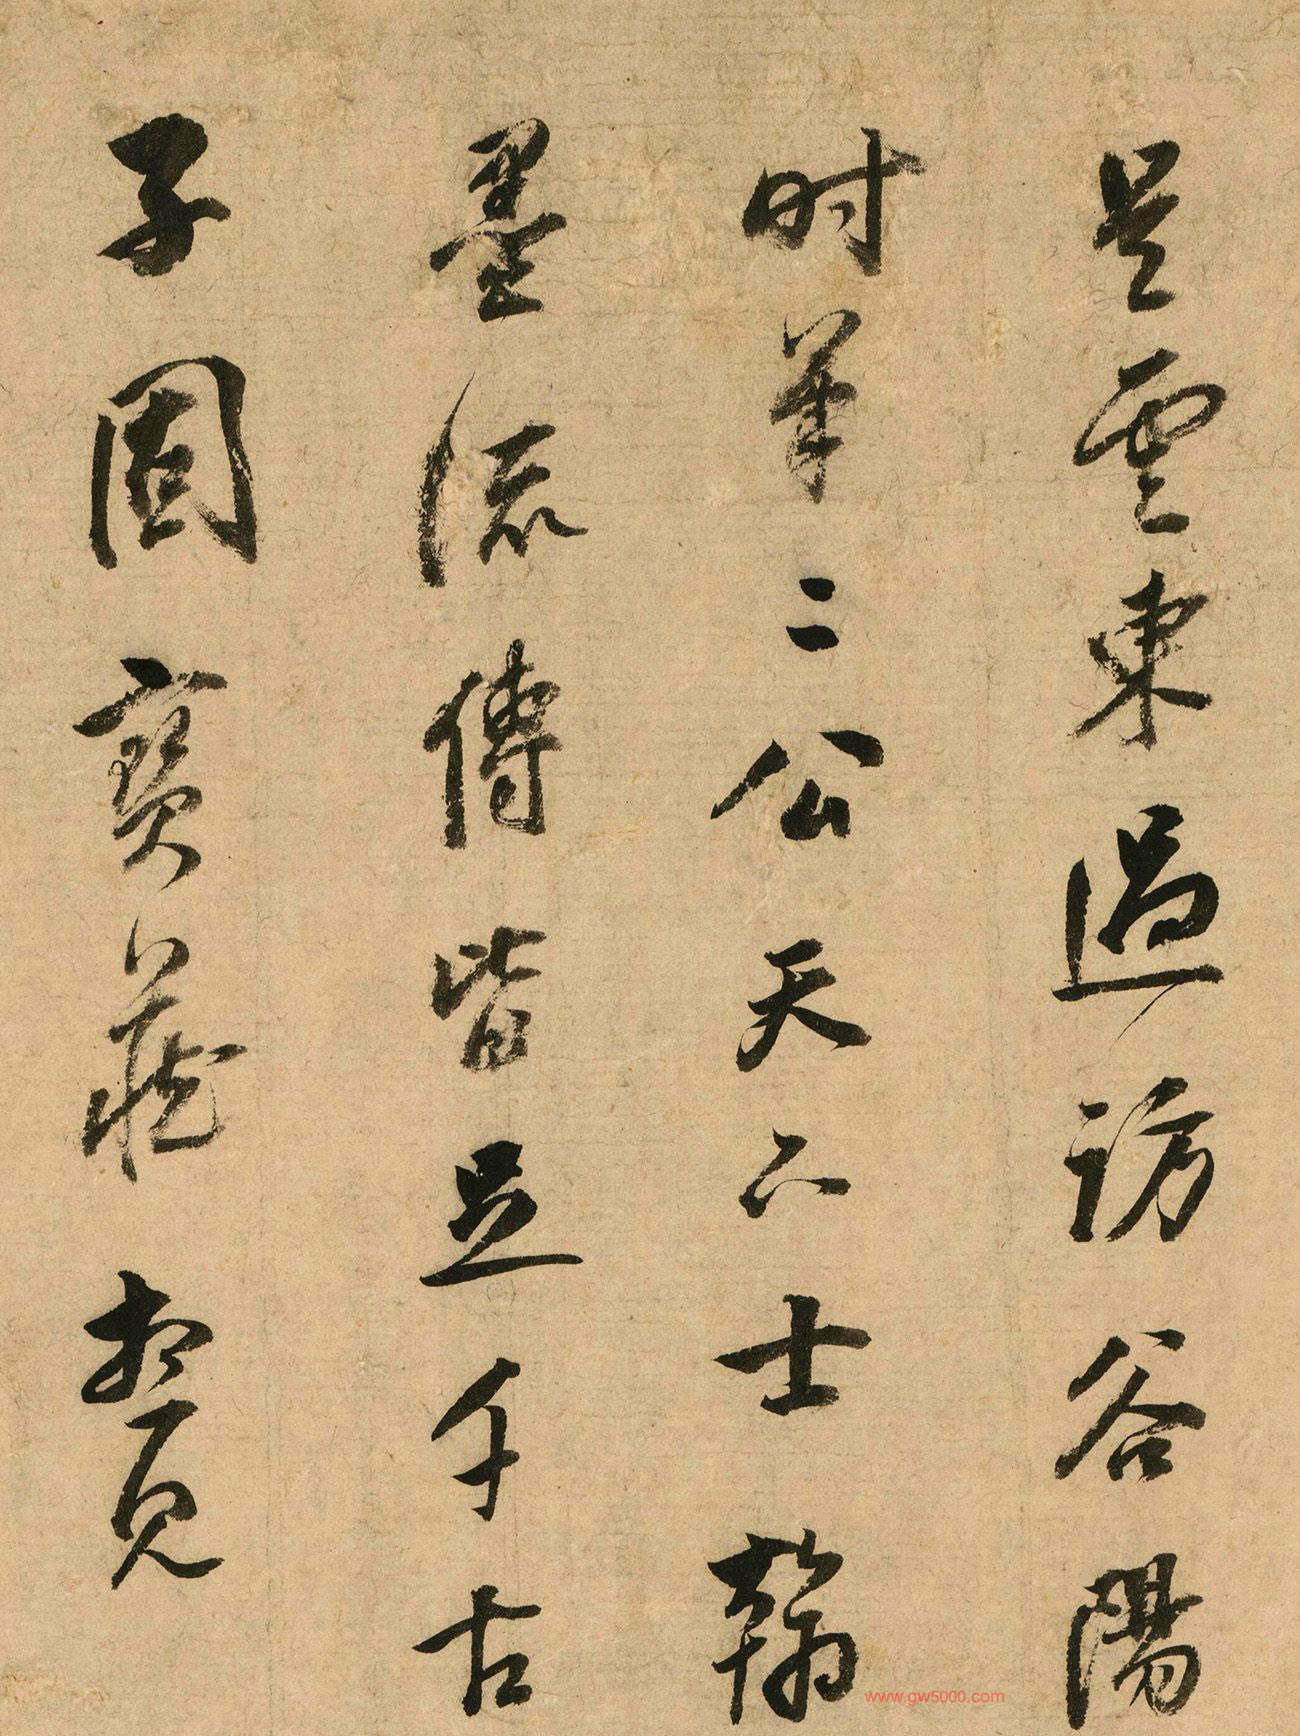 是雲東過訪谷陽
时筆二公天下士翰
墨流傳皆足千古
子固寶藏想見
www.gw5000.com